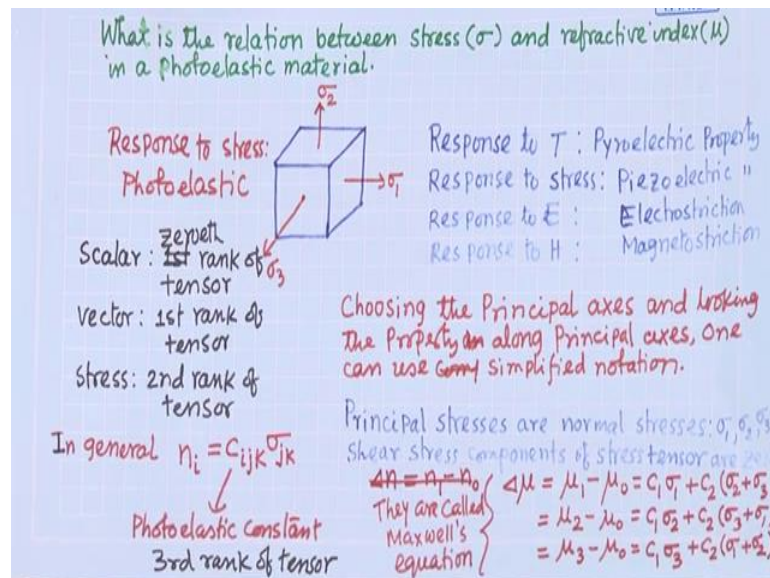 What is the relation between stress (σ) and refractive index (μ)
in a photoelastic material.
σ2
Response to stress:
Photoelastic
σ1
σ3
Response to T : Pyroelectric Property
Response to stress: Piezoelectric "
Response to E : Electrostriction
Response to H : Magnetostriction
zeroeth
Scalar : 1st rank of
tensor
Vector: 1st rank of
tensor
Stress: 2nd rank of
tensor
Choosing the Principal axes and looking
the Property an along Principal axes, one
can use simplified notation.
Principal stresses are normal stresses: σ1, σ2, σ3
Shear stress components of stress tensor are
In general ni = Cijk σjk
Photoelastic Constant
3rd rank of tensor
Δn = n1 - n0
They are Called
Maxwell's
equation
Δμ = μ1 - μ0 = C1σ1 + C2(σ2+σ3
= μ2 - μ0 = C1σ2 + C2(σ3+σ1
= μ3 - μ0 = C1σ3 + C2(σ1+σ2